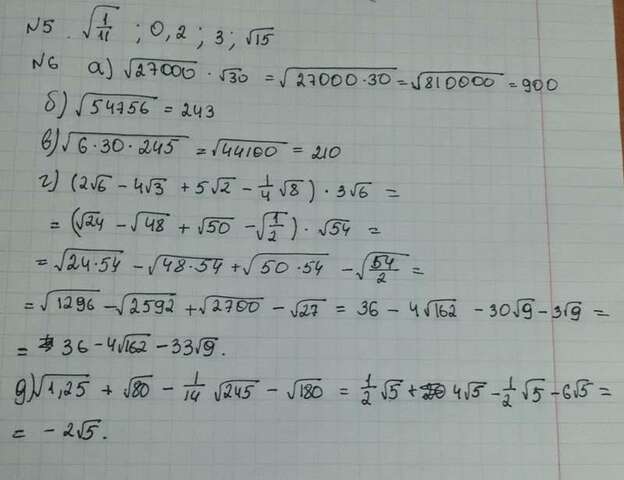 N5. √(1/11) ; 0,2 ; 3 ; √15
N6 а) √27000 · √30 = √27000·30 = √810000 = 900
б) √54756 = 243
в) √6·30·245 = √44100 = 210
г) (2√6 - 4√3 + 5√2 - 1/4 √8) · 3√6 =
= (√24 - √48 + √50 - √(1/2)) · √54 =
= √24·54 - √48·54 + √50·54 - √(54/2) =
= √1296 - √2592 + √2700 - √27 = 36 - 4√162 - 30√9 - 3√9 =
= 36 - 4√162 - 33√9.
д) √1,25 + √80 - 1/14 √245 - √180 = 1/2 √5 + 4√5 - 1/2 √5 - 6√5 =
= - 2√5.